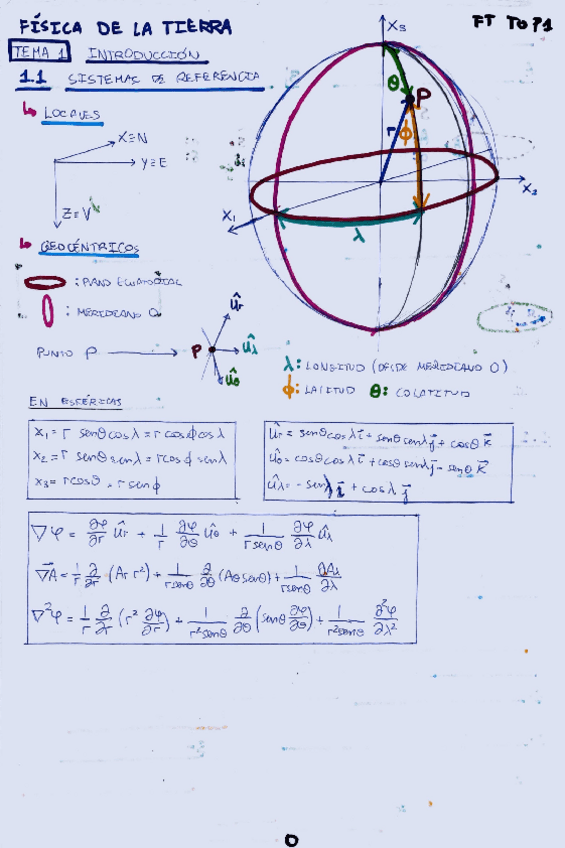 FÍSICA DE LA TIERRA
FT T0 P1
TEMA 1 INTRODUCCIÓN
1.1 SISTEMAS DE REFERENCIA
↳ LOCALES
X≡N
Y≡E
Z≡V
↳ GEOCÉNTRICOS
: PLANO ECUATORIAL
: MERIDIANO 0
PUNTO P → P
ûr
ûλ
ûθ
X₃
X₂
X₁
θ
P
r
ϕ
λ
λ: LONGITUD (DESDE MERIDIANO 0)
ϕ: LATITUD θ: COLATITUD
EN ESFÉRICAS
X₁ = r senθ cosλ = r cosϕ cosλ
X₂ = r senθ senλ = r cosϕ senλ
X₃ = r cosθ = r senϕ
ûr = senθ cosλ i⃗ + senθ senλ j⃗ + cosθ k⃗
ûθ = cosθ cosλ i⃗ + cosθ senλ j⃗ - senθ k⃗
ûλ = -senλ i⃗ + cosλ j⃗
∇φ = ∂φ/∂r ûr + 1/r ∂φ/∂θ ûθ + 1/(r senθ) ∂φ/∂λ ûλ
∇⃗A = 1/r ∂/∂r (Ar r²) + 1/(r senθ) ∂/∂θ (Aθ senθ) + 1/(r senθ) ∂Aλ/∂λ
∇²φ = 1/r ∂/∂r (r² ∂φ/∂r) + 1/(r² senθ) ∂/∂θ (senθ ∂φ/∂θ) + 1/(r² senθ) ∂²φ/∂λ²
0